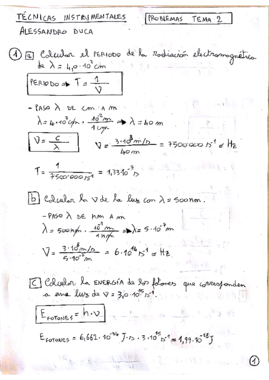 TÉCNICAS INSTRUMENTALES
PROBLEMAS TEMA 2
ALESSANDRO DUCA
1 a Calcular el PERIODO de la radiación electromagnética
de λ = 4,0·10³ cm
PERIODO → T = 1/ν
- PASO λ DE cm A m
λ = 4·10³ cm · 10⁻² m / 1 cm → λ = 40 m
ν = c/λ
ν = 3·10⁸ m/s / 40 m = 7500000 s⁻¹ o Hz
T = 1 / 7500000 s⁻¹ = 1,33·10⁻⁷ s
b Calcular la ν de la luz con λ = 500 nm.
- PASO λ DE nm A m
λ = 500 nm · 10⁻⁹ m / 1 nm → λ = 5·10⁻⁷ m
ν = 3·10⁸ m/s / 5·10⁻⁷ m = 6·10¹⁴ s⁻¹ o Hz
c Calcular la ENERGÍA de los fotones que corresponden
a una luz de ν = 3,0·10¹⁵ s⁻¹.
E FOTONES = h·ν
E FOTONES = 6,662·10⁻³⁴ J·s · 3·10¹⁵ s⁻¹ = 1,99·10⁻¹⁸ J
1